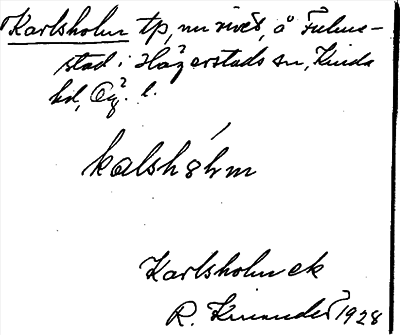 Karlsholm tp, nu rivet, å Fulme-
stad i Hägerstads sn, Kinda
hd, Ög. l.
kalshólm
Karlsholm ek
R. Kinander 1928